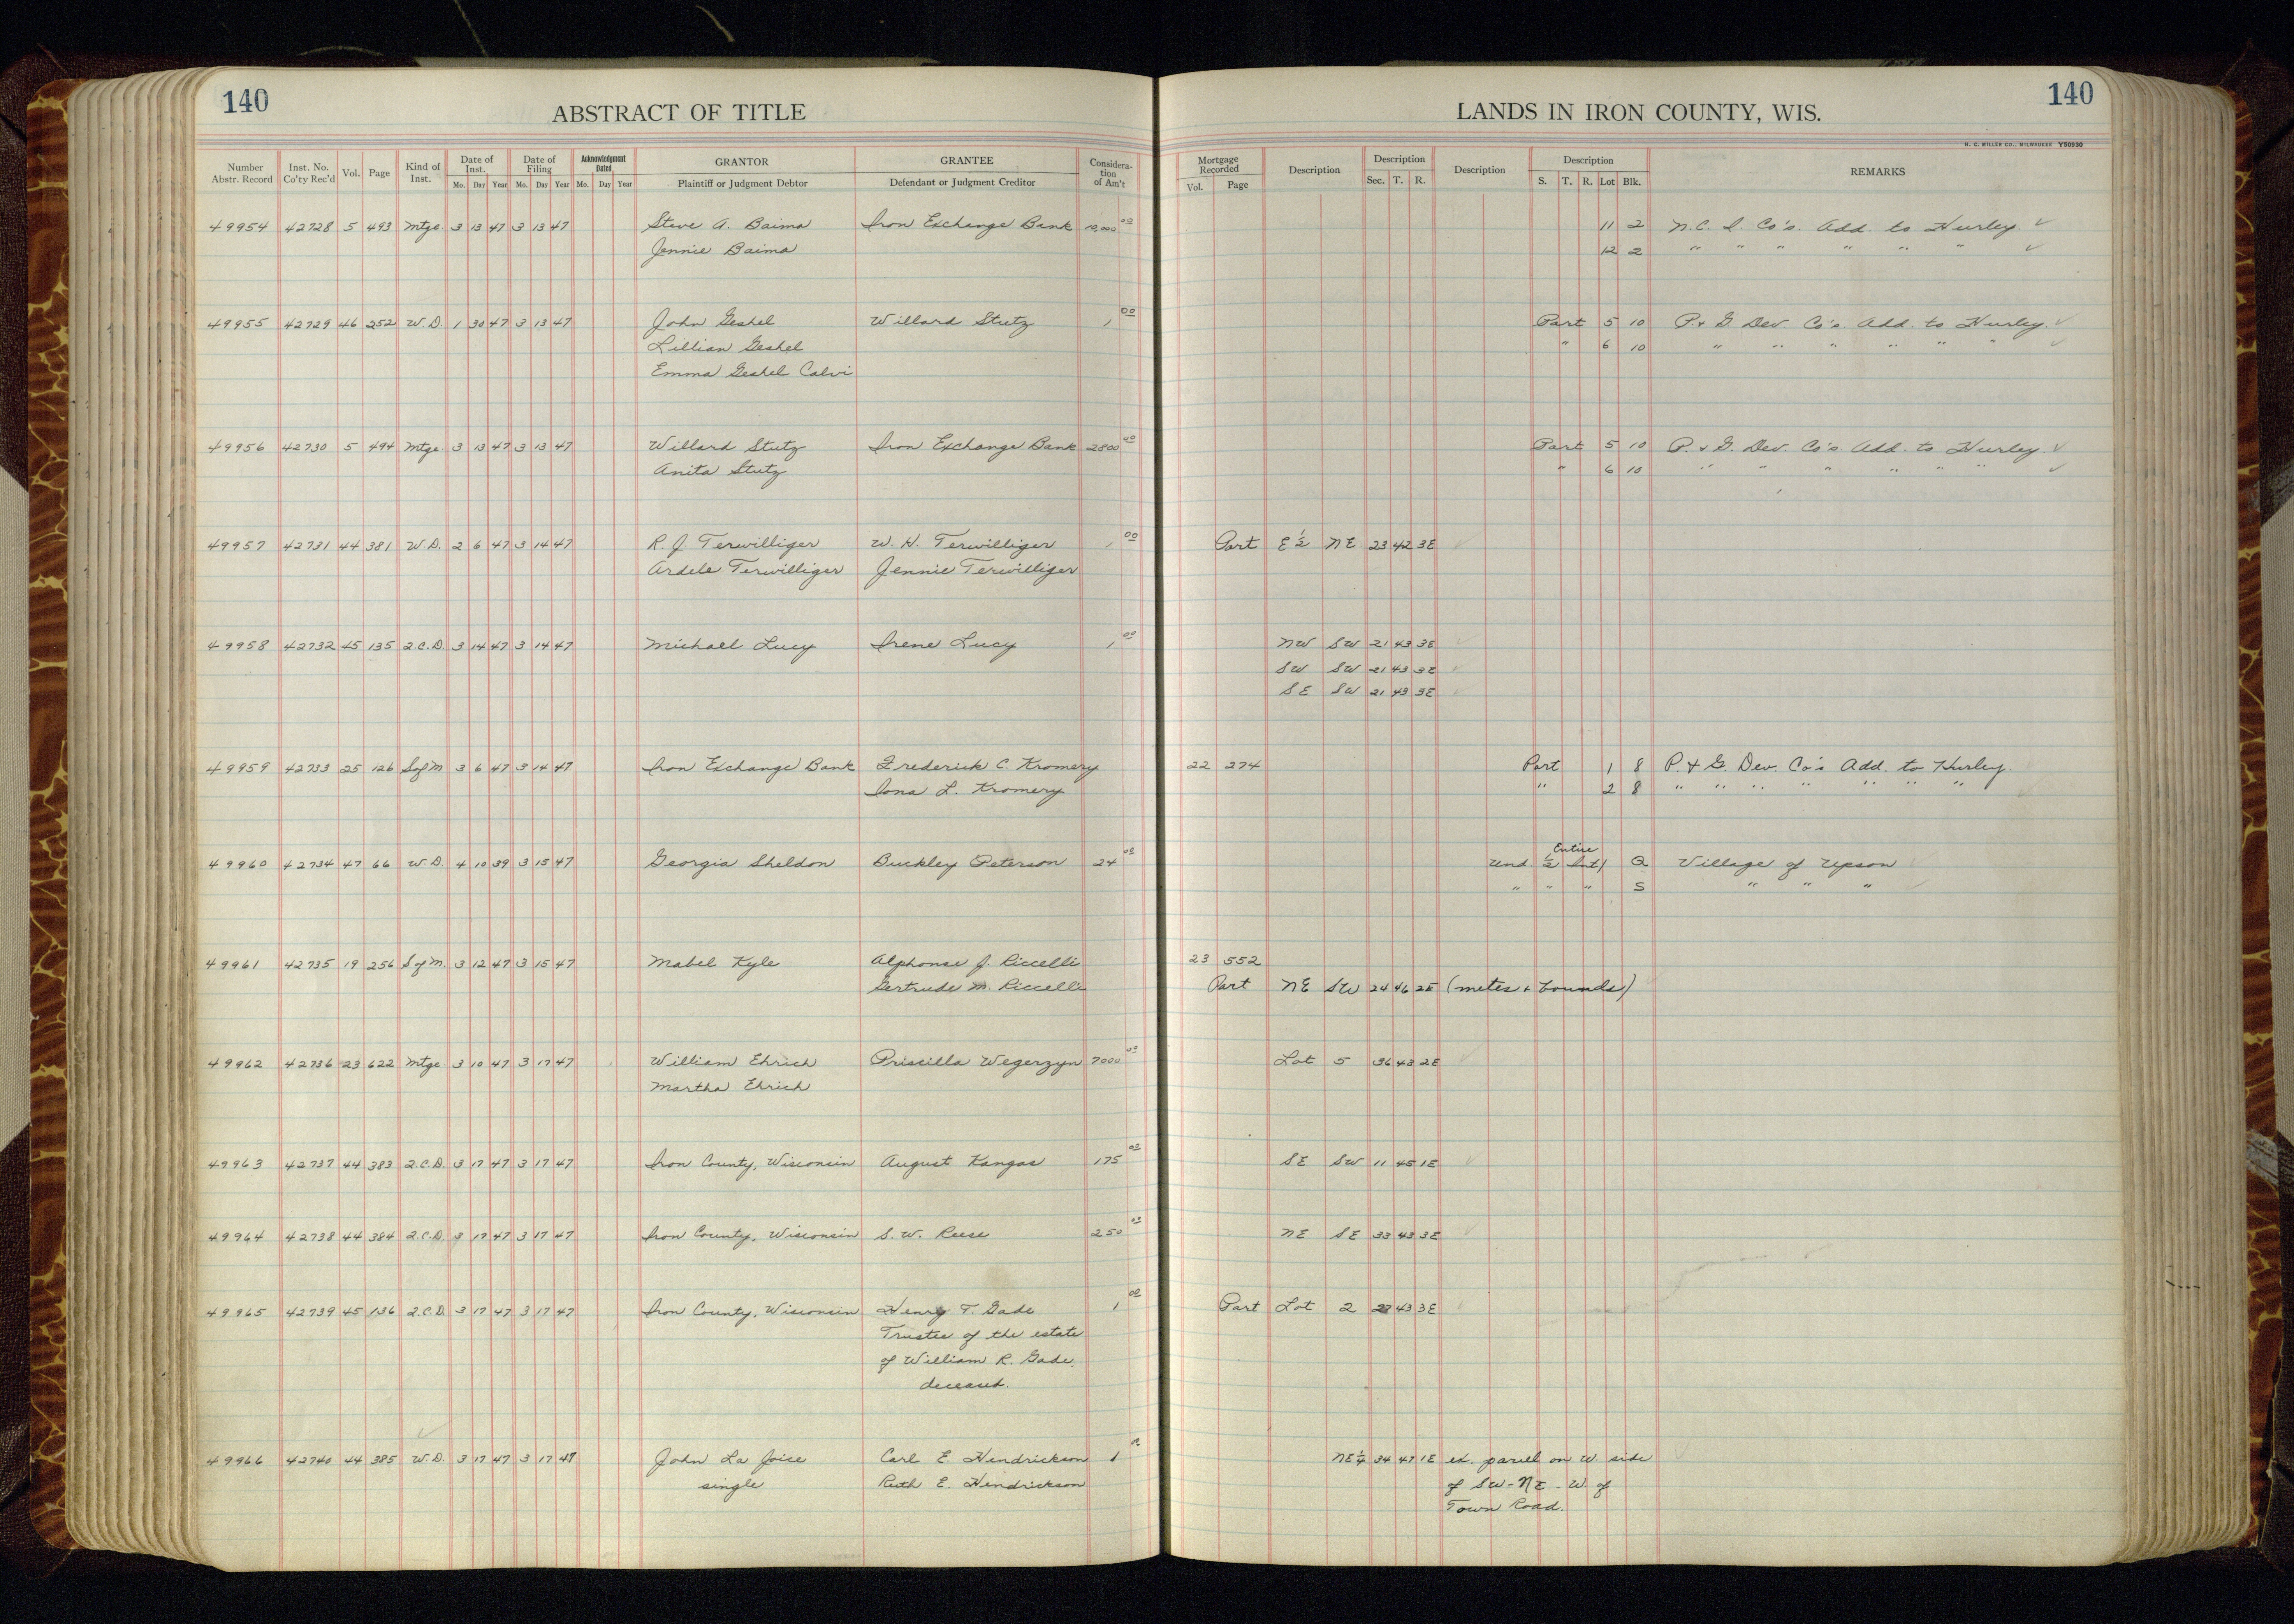 140
ABSTRACT OF TITLE
LANDS IN IRON COUNTY, WIS.
140
H. C. MILLER CO., MILWAUKEE Y50930
Number Abstr. Record | Inst. No. Co'ty Rec'd | Vol. | Page | Kind of Inst. | Date of Inst. Mo. Day Year | Date of Filing Mo. Day Year | Acknowledgment Dated Mo. Day Year | GRANTOR Plaintiff or Judgment Debtor | GRANTEE Defendant or Judgment Creditor | Consideration of Am't | Mortgage Recorded Vol. Page | Description | Description Sec. T. R. | Description | Description S. T. R. Lot Blk. | REMARKS
49954 42728 5 493 Mtge. 3 13 47 3 13 47 Steve A. Baima Iron Exchange Bank 10,000 00 11 2 N.C. I. Co's. Add. to Hurley ✓
Jennie Baima 12 2 " " " " " " ✓
49955 42729 46 252 W.D. 1 30 47 3 13 47 John Geshel Willard Stutz 1 00 Part 5 10 P. & G. Dev. Co's. Add. to Hurley ✓
Lillian Geshel " 6 10 " " " " " " ✓
Emma Geshel Calvi
49956 42730 5 494 Mtge. 3 13 47 3 13 47 Willard Stutz Iron Exchange Bank 2800 00 Part 5 10 P. & G. Dev. Co's Add. to Hurley ✓
Anita Stutz " 6 10 " " " " " " ✓
49957 42731 44 381 W.D. 2 6 47 3 14 47 R. J. Terwilliger W. H. Terwilliger 1 00 Part E ½ NE 23 42 3E ✓
Ardele Terwilliger Jennie Terwilliger
49958 42732 45 135 2.C.D. 3 14 47 3 14 47 Michael Lucy Irene Lucy 1 00 NW SW 21 43 3E ✓
SW SW 21 43 3E ✓
SE SW 21 43 3E ✓
49959 42733 25 126 S of M 3 6 47 3 14 47 Iron Exchange Bank Frederick C. Kromery 22 274 Part 1 8 P. & G. Dev. Co's Add. to Hurley
Iona L. Kromery " 2 8 " " " " " " " ✓
49960 42734 47 66 W.D. 4 10 39 3 15 47 Georgia Sheldon Buckley Peterson 24 08 Entire Und. ½ Int) Q Village of Upson ✓
" " " S " " " ✓
49961 42735 19 256 S of M. 3 12 47 3 15 47 Mabel Kyle Alphonse J. Riccelli 23 552
Gertrude M. Riccelli Part NE SW 24 46 2E (metes & bounds) ✓
49962 42736 23 622 Mtge 3 10 47 3 17 47 William Ehrich Priscilla Wegerzyn 7000 00 Lot 5 36 43 2E ✓
Martha Ehrich
49963 42737 44 383 2.C.D. 3 17 47 3 17 47 Iron County, Wisconsin August Kangas 175 00 SE SW 11 45 1E ✓
49964 42738 44 384 2.C.D. 3 17 47 3 17 47 Iron County, Wisconsin S. W. Reese 250 00 NE SE 33 43 3E ✓
49965 42739 45 136 2.C.D. 3 17 47 3 17 47 Iron County, Wisconsin Henry T. Gade 1 00 Part Lot 2 43 3E ✓
Trustee of the estate
of William R. Gade,
deceased.
49966 42740 44 385 W.D. 3 17 47 3 17 47 John La Joice Carl E. Hendrickson 1 NE¼ 34 47 1E ex. parcel on W. side ✓
single Ruth E. Hendrickson of SW-NE - W. of
Town Road.